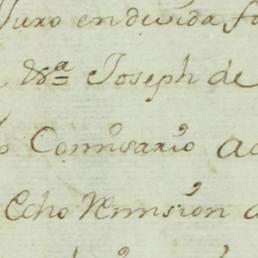 Juro en devida fo
Joseph de
Comisario ac
Echo Remision a